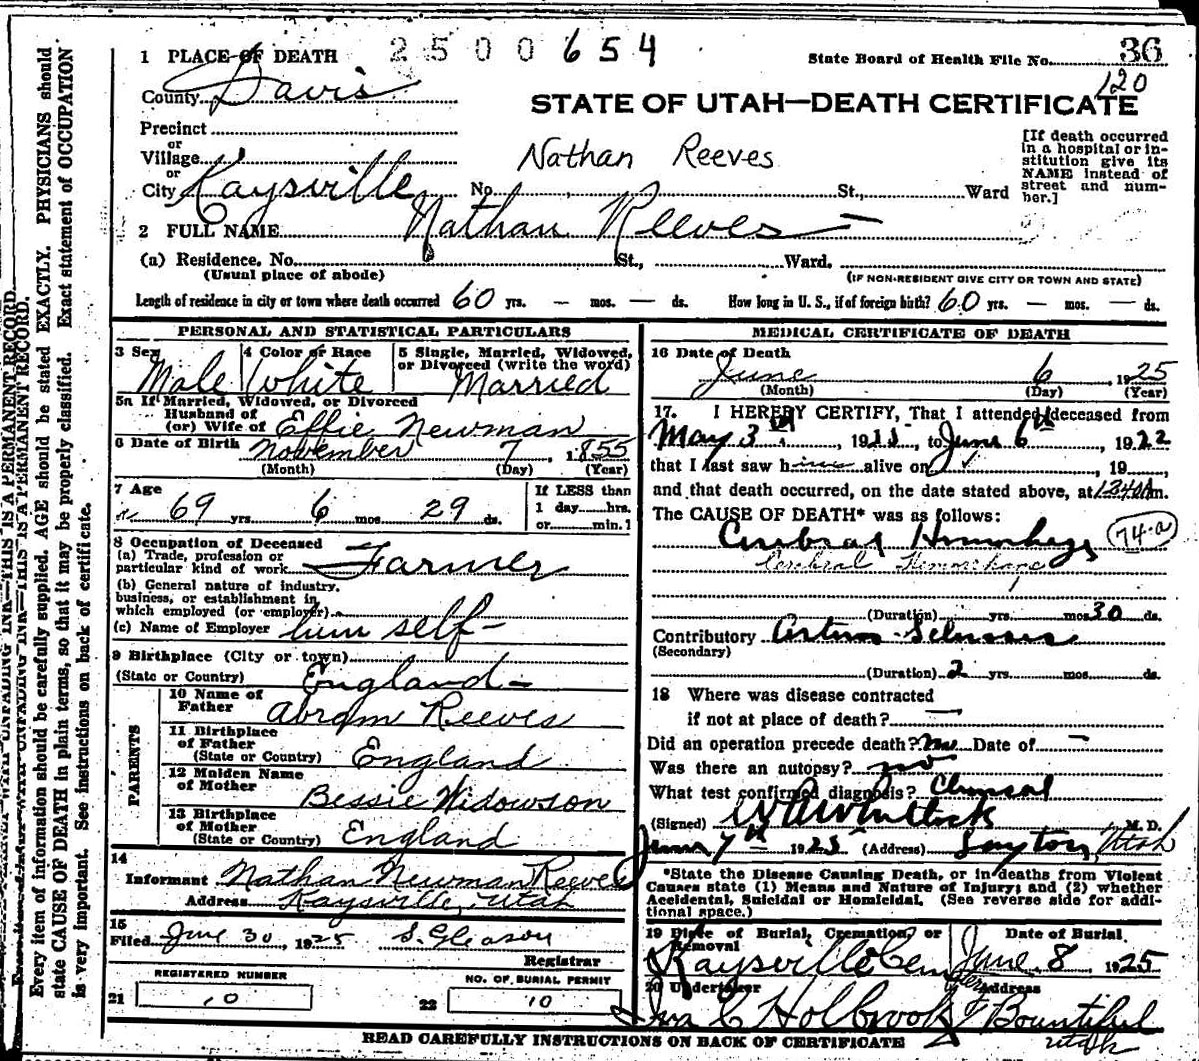 36
2500654
1 PLACE OF DEATH
State Board of Health File No.
120
County Davis
STATE OF UTAH—DEATH CERTIFICATE
Precinct
or
Village
Nathan Reeves
[If death occurred in a hospital or institution give its NAME instead of street and number.]
or
City Kaysville No. St., Ward
2 FULL NAME Nathan Reeves —
(a) Residence, No. St., Ward,
(Usual place of abode)
(IF NON-RESIDENT GIVE CITY OR TOWN AND STATE)
Length of residence in city or town where death occurred 60 yrs. — mos. — ds. How long in U. S., if of foreign birth? 60 yrs. — mos. — ds.
PERSONAL AND STATISTICAL PARTICULARS
3 Sex Male
4 Color or Race White
5 Single, Married, Widowed, or Divorced (write the word) Married
5a If Married, Widowed, or Divorced
Husband of
(or) Wife of Effie Newman
6 Date of Birth November 7, 1855
(Month) (Day) (Year)
7 Age 69 yrs. 6 mos. 29 ds.
If LESS than
1 day hrs.
or min.
8 Occupation of Deceased
(a) Trade, profession or
particular kind of work Farmer
(b) General nature of industry,
business, or establishment in
which employed (or employer)
(c) Name of Employer him self —
9 Birthplace (City or town)
(State or Country) England —
PARENTS
10 Name of
Father Abram Reeves
11 Birthplace
of Father
(State or Country) England
12 Maiden Name
of Mother Bessie Widowson
13 Birthplace of
Mother
(State or Country) England
14
Informant Nathan Newman Reeves
Address Kaysville, Utah
15
Filed June 30, 1925 S. Gleason
Registrar
REGISTERED NUMBER
21 10
NO. OF BURIAL PERMIT
22 10
MEDICAL CERTIFICATE OF DEATH
16 Date of Death
June 6, 1925
(Month) (Day) (Year)
17. I HEREBY CERTIFY, That I attended deceased from
May 3, 19 to June 6th 19
that I last saw him alive on , 19 ,
and that death occurred, on the date stated above, at m.
The CAUSE OF DEATH* was as follows:
74-a
Cerebral Hemorhage
Cerebral Hemorrhage
(Duration) yrs. mos. 30 ds.
Contributory
(Secondary)
(Duration) 2 yrs. mos. ds.
18 Where was disease contracted
if not at place of death? —
Did an operation precede death? no Date of —
Was there an autopsy? no
What test confirmed diagnosis? Clinical
(Signed) M. D.
June 7th 1925 (Address) Layton, Utah
*State the Disease Causing Death, or in deaths from Violent
Causes state (1) Means and Nature of Injury; and (2) whether
Accidental, Suicidal or Homicidal. (See reverse side for addi-
tional space.)
19 Place of Burial, Cremation, or
Removal
Kaysville Cemetery
Date of Burial
June 8 1925
20 Undertaker
Ira C Holbrook
Address
Bountiful
Utah
READ CAREFULLY INSTRUCTIONS ON BACK OF CERTIFICATE
THIS IS A PERMANENT RECORD.
Every item of information should be carefully supplied. AGE should be stated EXACTLY. PHYSICIANS should
state CAUSE OF DEATH in plain terms, so that it may be properly classified. Exact statement of OCCUPATION
is very important. See instructions on back of certificate.